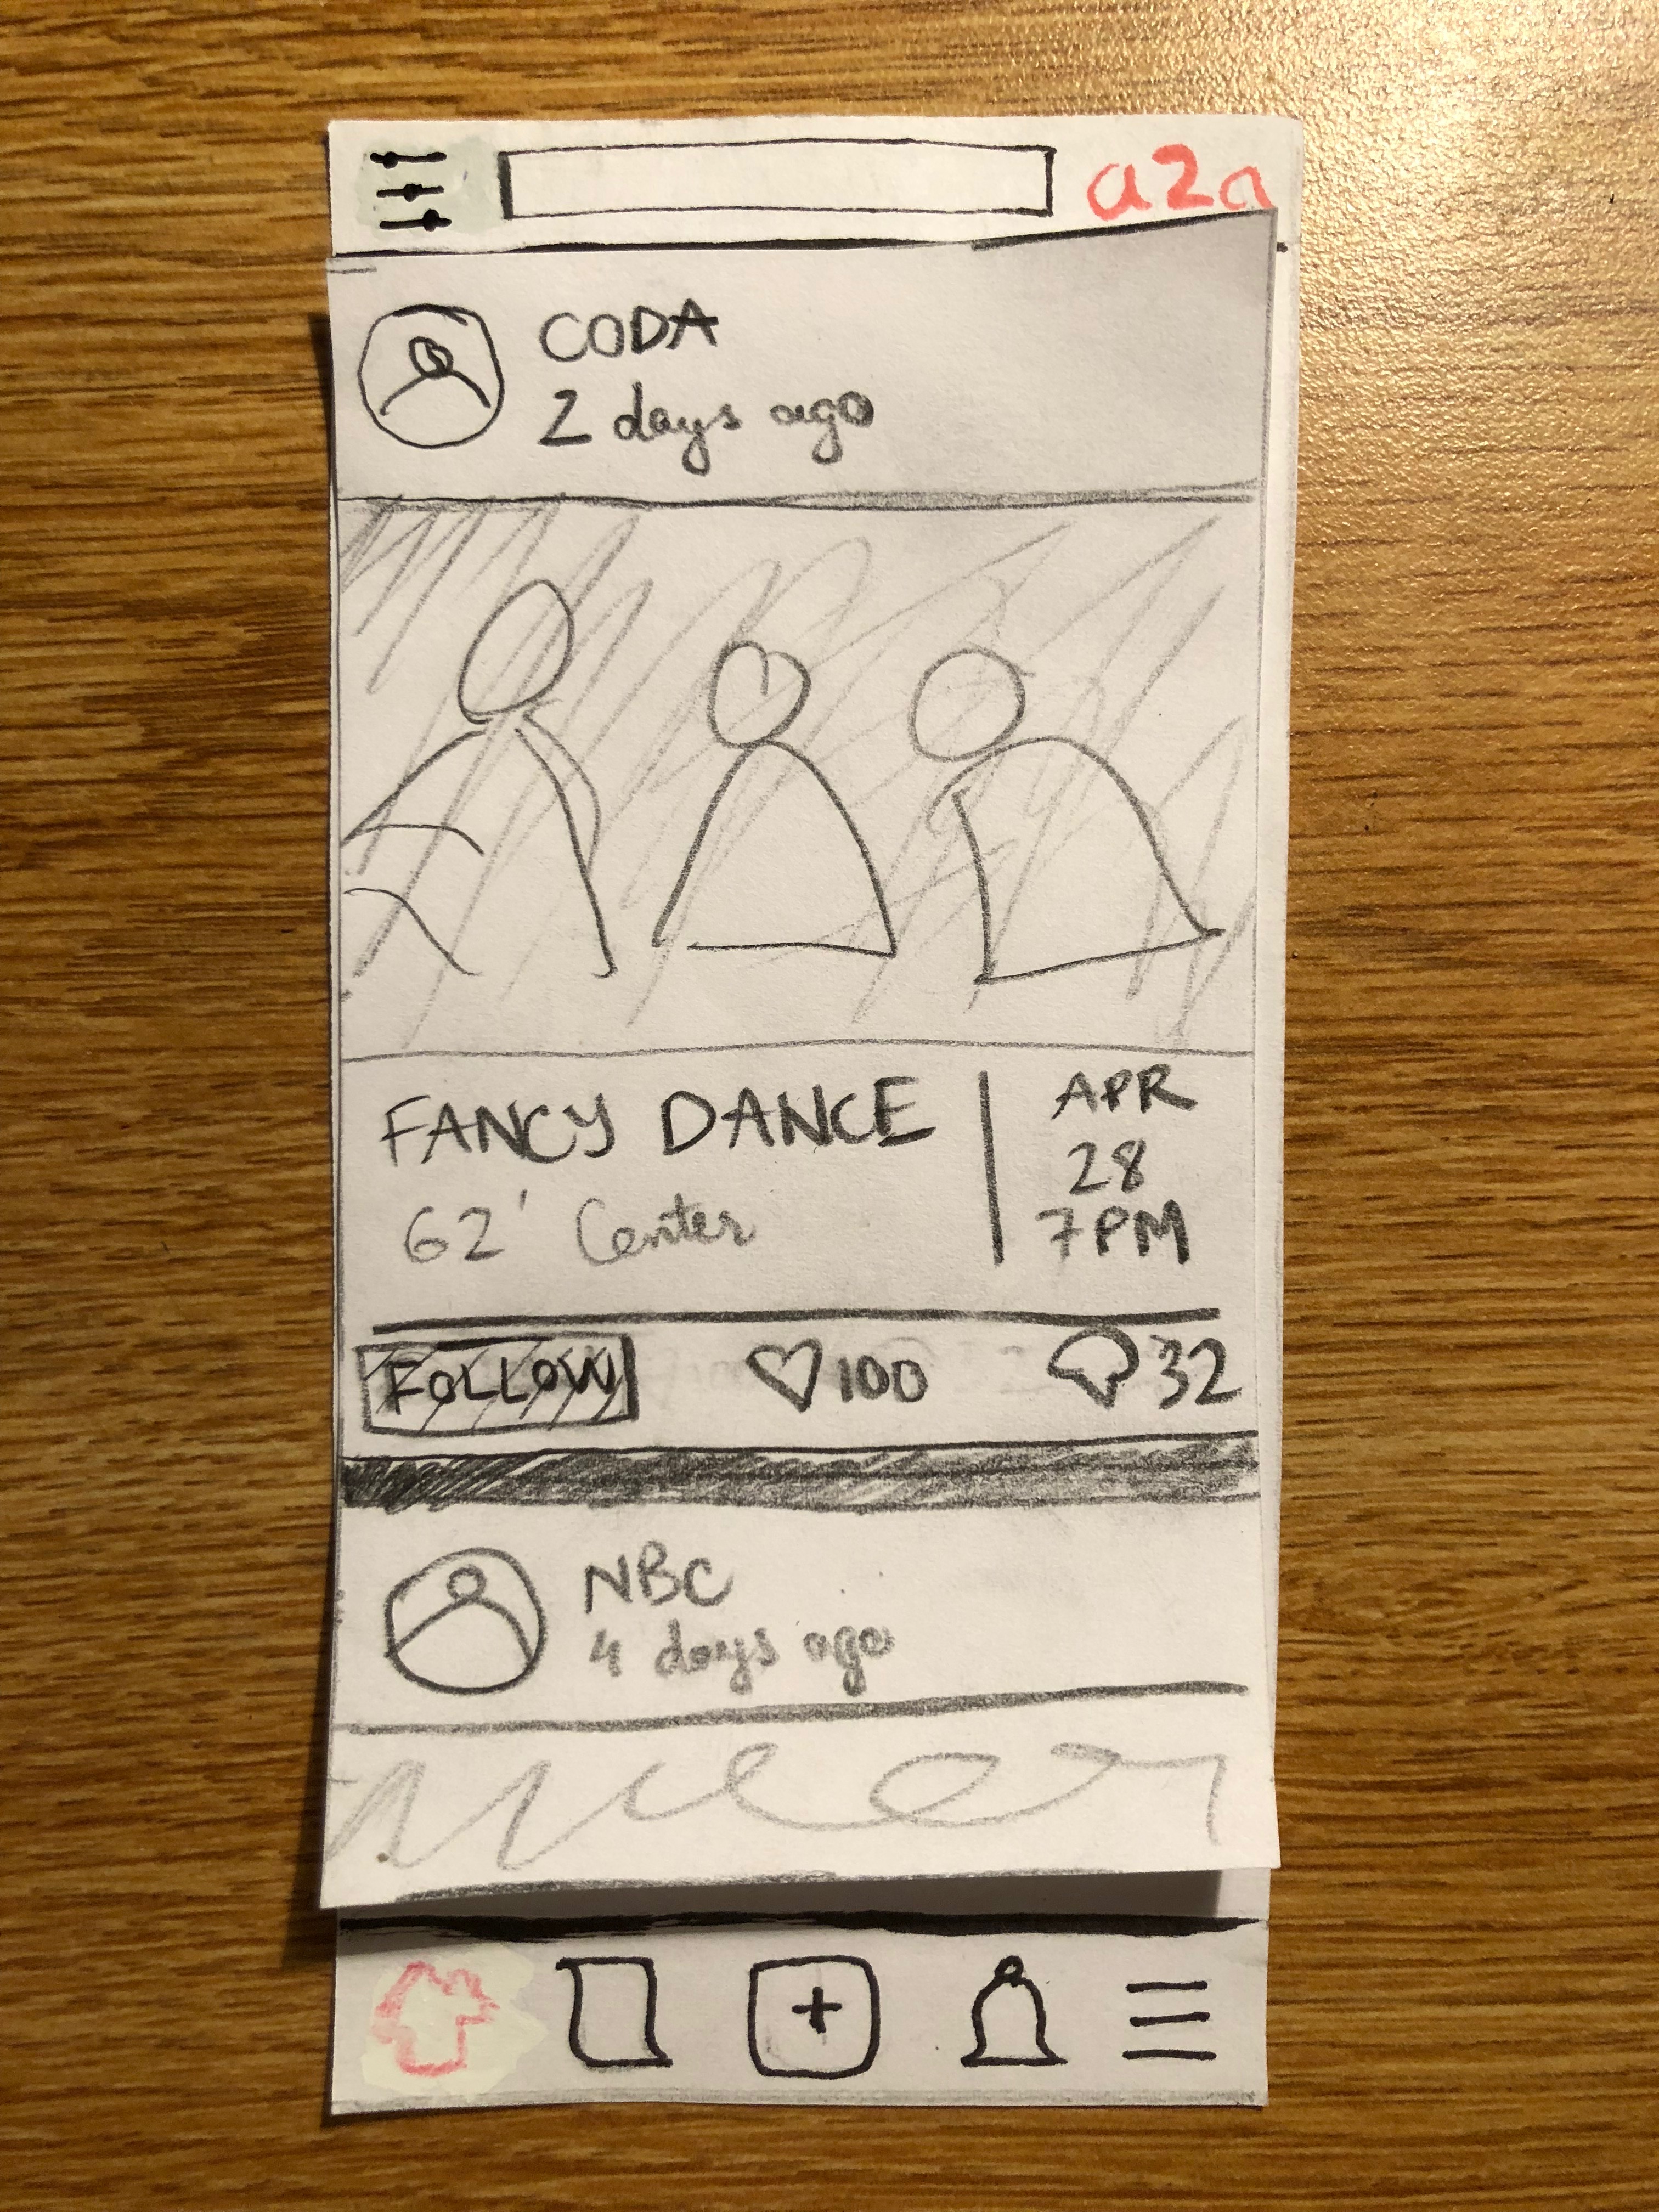 a2a
CODA
2 days ago
FANCY DANCE
62' Center
APR
28
7PM
FOLLOW
100
32
NBC
4 days ago